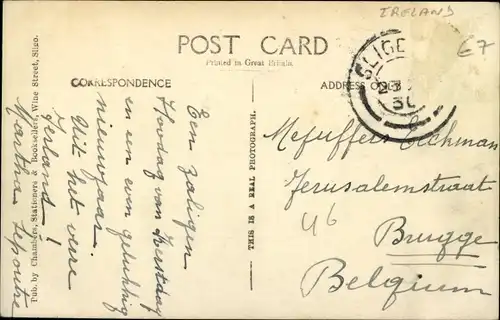 IRELAND
67
POST CARD
Printed in Great Britain
CORRESPONDENCE
ADDRESS ONLY
SLIGO
Een zaligen
Hoogdag van Kerstdag
en een even gelukkig
nieuwjaar.
Uit het verre
Ierland!
Martha Lepoutre
Pub. by Chambers, Stationers & Booksellers, Wine Street, Sligo.
THIS IS A REAL PHOTOGRAPH.
Mejuffers Eeckman
Jerusalemstraat
46
Brugge
Belgium